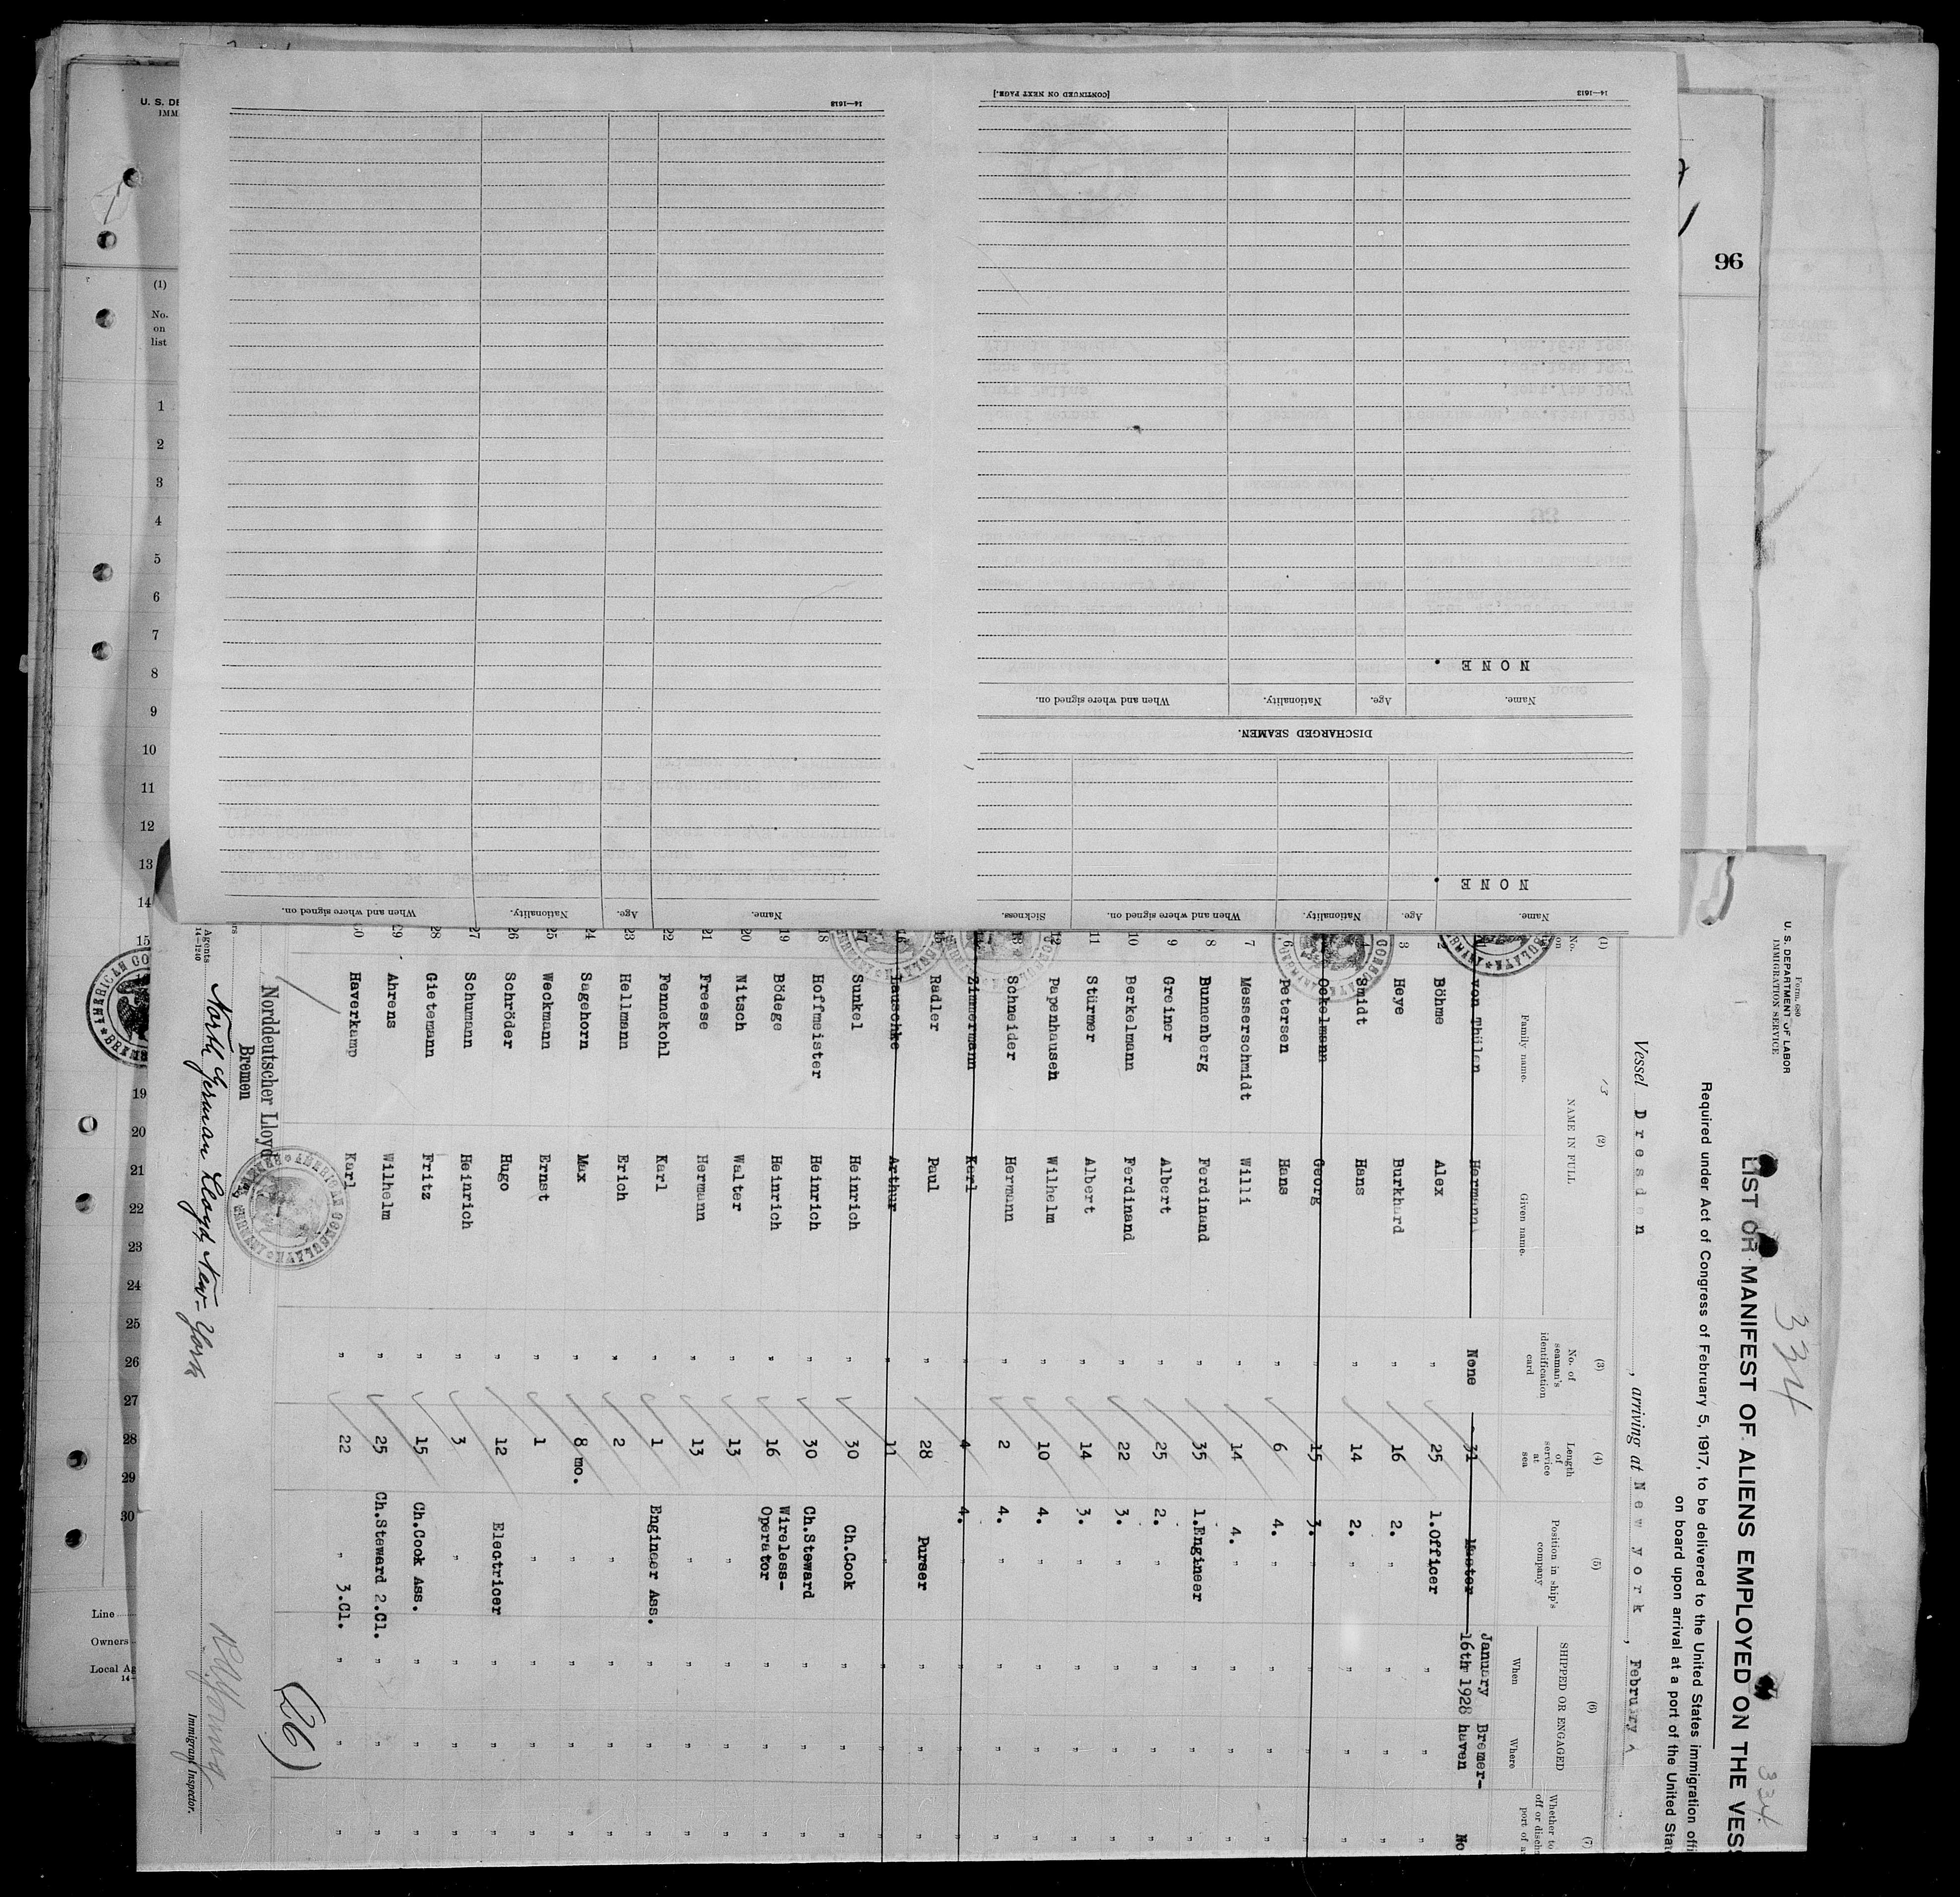 334
334
Form 680
U. S. DEPARTMENT OF LABOR
IMMIGRATION SERVICE
LIST OR MANIFEST OF ALIENS EMPLOYED ON THE VES
Required under Act of Congress of February 5, 1917, to be delivered to the United States immigration offi
on board upon arrival at a port of the United Stat
Vessel Dresden, arriving at New york, February
(1) (2) (3) (4) (5) (6) (7)
No. on NAME IN FULL No. of seaman's identification card Length of service at sea Position in ship's company SHIPPED OR ENGAGED Whether to
off or disch
port of a
Family name. Given name. When Where
1 von Thülen Hermann None 31 Master January 16th 1928 Bremer-haven No
2 Böhme Alex " 25 1.Officer " " "
3 Heye Burkhard " 16 2. " " " "
4 Smidt Hans " 14 2. " " " "
Oekelmann Georg " 15 3. " " " "
6 Petersen Hans " 6 4. " " " "
7 Messerschmidt Willi " 14 4. " " " "
8 Bunnenberg Ferdinand " 35 1.Engineer " " "
9 Greiner Albert " 25 2. " " " "
10 Berkelmann Ferdinand " 22 3. " " " "
11 Stürmer Albert " 14 3. " " " "
12 Papenhausen Wilhelm " 10 4. " " " "
13 Schneider Hermann " 2 4. " " " "
Zimmermann Karl " 4 4. " " " "
15 Radler Paul " 28 Purser " " "
16 Lauschke Arthur " 11 " " " "
17 Sunkel Heinrich " 30 Ch.Cook " " "
18 Hoffmeister Heinrich " 30 Ch.Steward " " "
19 Bödege Heinrich " 16 Wireless-Operator " " "
20 Nitsch Walter " 13 " " " "
21 Freese Hermann " 13 " " " "
22 Fennekohl Karl " 1 Engineer Ass. " " "
23 Hellmann Erich " 2 " " " "
24 Sagehorn Max " 8 mo. " " " "
25 Weckmann Ernst " 1 " " " "
26 Schröder Hugo " 12 Electricer " " "
27 Schumann Heinrich " 3 " " " "
28 Gietemann Fritz " 15 Ch.Cook Ass. " " "
29 Ahrens Wilhelm " 25 Ch.Steward 2.Cl. " " "
30 Haverkamp Karl " 22 " 3.Cl. " " "
(26)
Norddeutscher Lloyd
Bremen
North German Lloyd, New-York
Agents
14—1240
Immigrant Inspector.
Name. Age. Nationality. When and where signed on. Sickness.
NONE .
DISCHARGED SEAMEN.
Name. Age. Nationality. When and where signed on.
NONE .
14—1613
[CONTINUED ON NEXT PAGE.]
Name. Age. Nationality. When and where signed on.
14—1613
96
U. S. DE
IMM
(1)
No.
on
list
1
2
3
4
5
6
7
8
9
10
11
12
13
14
15
19
20
21
22
23
24
25
26
27
28
29
30
Line
Owners
Local Ag
14—